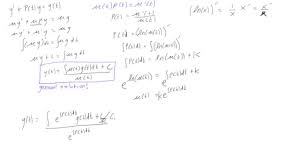 y' + P(t)y = g(t)
μy' + μPy = μg
μy' + μ'y = μg
∫(μy)' = ∫μg
μy + C = ∫μg dt
y(t) = ∫μ(t)g(t)dt + C / μ(t)
general solution
μ(t)P(t) = μ'(t)
P(t) = μ'(t) / μ(t)
P(t) = (ln(μ(t)))'
∫P(t)dt = ∫(ln(μ(t)))'
∫P(t)dt = ln(μ(t)) + k
e^ln(μ(t)) = e^∫P(t)dt + k
μ(t) = ke^∫P(t)dt
(ln(x))' = 1/x · x' = x'/x
y(t) = ∫ e^∫P(t)dt g(t)dt + C / e^∫P(t)dt